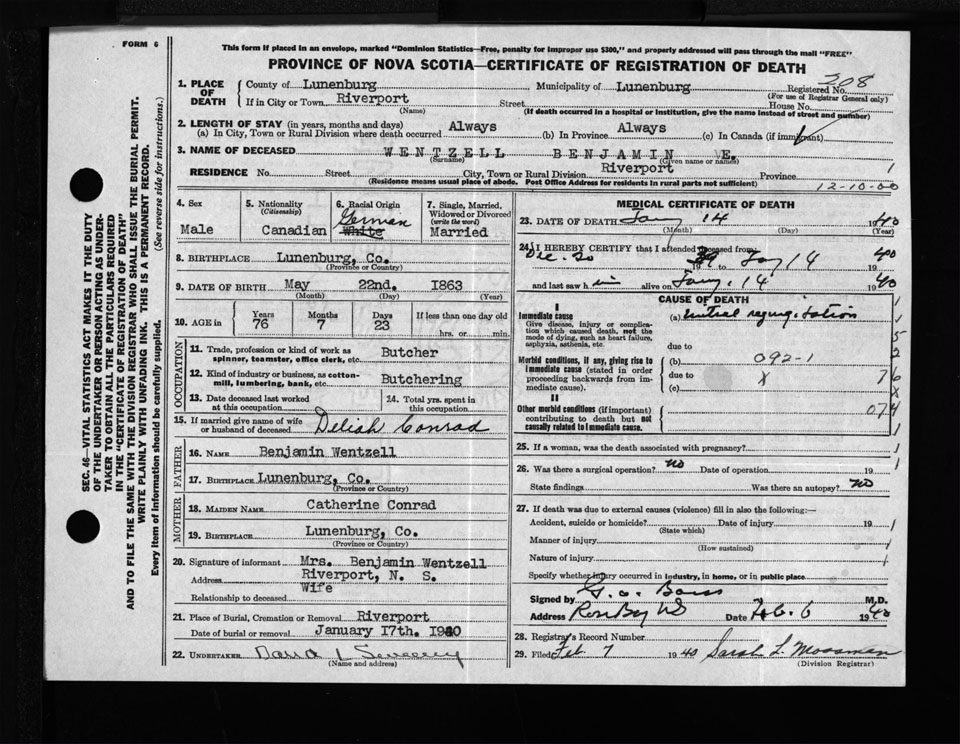 FORM 6
This form if placed in an envelope, marked "Dominion Statistics—Free, penalty for improper use $300," and properly addressed will pass through the mail "FREE"
PROVINCE OF NOVA SCOTIA—CERTIFICATE OF REGISTRATION OF DEATH
SEC. 46—VITAL STATISTICS ACT MAKES IT THE DUTY
OF THE UNDERTAKER OR PERSON ACTING AS UNDER-
TAKER TO OBTAIN ALL THE PARTICULARS REQUIRED
IN THE "CERTIFICATE OF REGISTRATION OF DEATH"
AND TO FILE THE SAME WITH THE DIVISION REGISTRAR WHO SHALL ISSUE THE BURIAL PERMIT.
WRITE PLAINLY WITH UNFADING INK. THIS IS A PERMANENT RECORD.
Every item of information should be carefully supplied. (See reverse side for instructions.)
1. PLACE OF DEATH County of Lunenburg Municipality of Lunenburg Registered No. 208
(For use of Registrar General only)
If in City or Town Riverport Street House No.
(Name) (If death occurred in a hospital or institution, give the name instead of street and number)
2. LENGTH OF STAY (in years, months and days)
(a) In City, Town or Rural Division where death occurred Always (b) In Province Always (c) In Canada (if immigrant)
3. NAME OF DECEASED WENTZELL BENJAMIN E.
(Surname) (Given name or names)
RESIDENCE No. Street City, Town or Rural Division Riverport Province 1
(Residence means usual place of abode. Post Office Address for residents in rural parts not sufficient) 12-10-00
4. Sex
Male
5. Nationality
(Citizenship)
Canadian
6. Racial Origin
German
White
7. Single, Married, Widowed or Divorced
(write the word)
Married
8. BIRTHPLACE Lunenburg, Co.
(Province or Country)
9. DATE OF BIRTH May 22nd. 1863
(Month) (Day) (Year)
10. AGE in Years 76 Months 7 Days 23 If less than one day old
hrs. or min.
OCCUPATION
11. Trade, profession or kind of work as spinner, teamster, office clerk, etc. Butcher
12. Kind of industry or business, as cotton-mill, lumbering, bank, etc. Butchering
13. Date deceased last worked at this occupation
14. Total yrs. spent in this occupation
15. If married give name of wife or husband of deceased Deliah Conrad
FATHER
16. NAME Benjamin Wentzell
17. BIRTHPLACE Lunenburg, Co.
(Province or Country)
MOTHER
18. MAIDEN NAME Catherine Conrad
19. BIRTHPLACE Lunenburg, Co.
(Province or Country)
20. Signature of informant Mrs. Benjamin Wentzell
Address Riverport, N. S.
Relationship to deceased Wife
21. Place of Burial, Cremation or Removal Riverport
Date of burial or removal January 17th. 1940
22. UNDERTAKER
(Name and address)
MEDICAL CERTIFICATE OF DEATH
23. DATE OF DEATH Jany 14 1940
(Month) (Day) (Year)
24. I HEREBY CERTIFY that I attended deceased from
Dec. 20 1939 Jany 14 1940
and last saw him alive on Jany. 14 1940
CAUSE OF DEATH
I
Immediate cause
Give disease, injury or complication which caused death, not the mode of dying, such as heart failure, asphyxia, asthenia, etc.
(a) mitral regurgitation
due to
Morbid conditions, if any, giving rise to immediate cause (stated in order proceeding backwards from immediate cause).
(b) 092-1
due to
(c)
II
Other morbid conditions (if important) contributing to death but not causally related to immediate cause.
074
25. If a woman, was the death associated with pregnancy?
26. Was there a surgical operation? No Date of operation 19
State findings Was there an autopsy? No
27. If death was due to external causes (violence) fill in also the following:—
Accident, suicide or homicide? Date of injury 19
(State which)
Manner of injury
(How sustained)
Nature of injury
Specify whether injury occurred in industry, in home, or in public place
Signed by M.D.
Address Rose Bay NS Date Feb. 6 1940
28. Registrar's Record Number
29. Filed Feb 7 1940 Sarah L. Mossman
(Division Registrar)